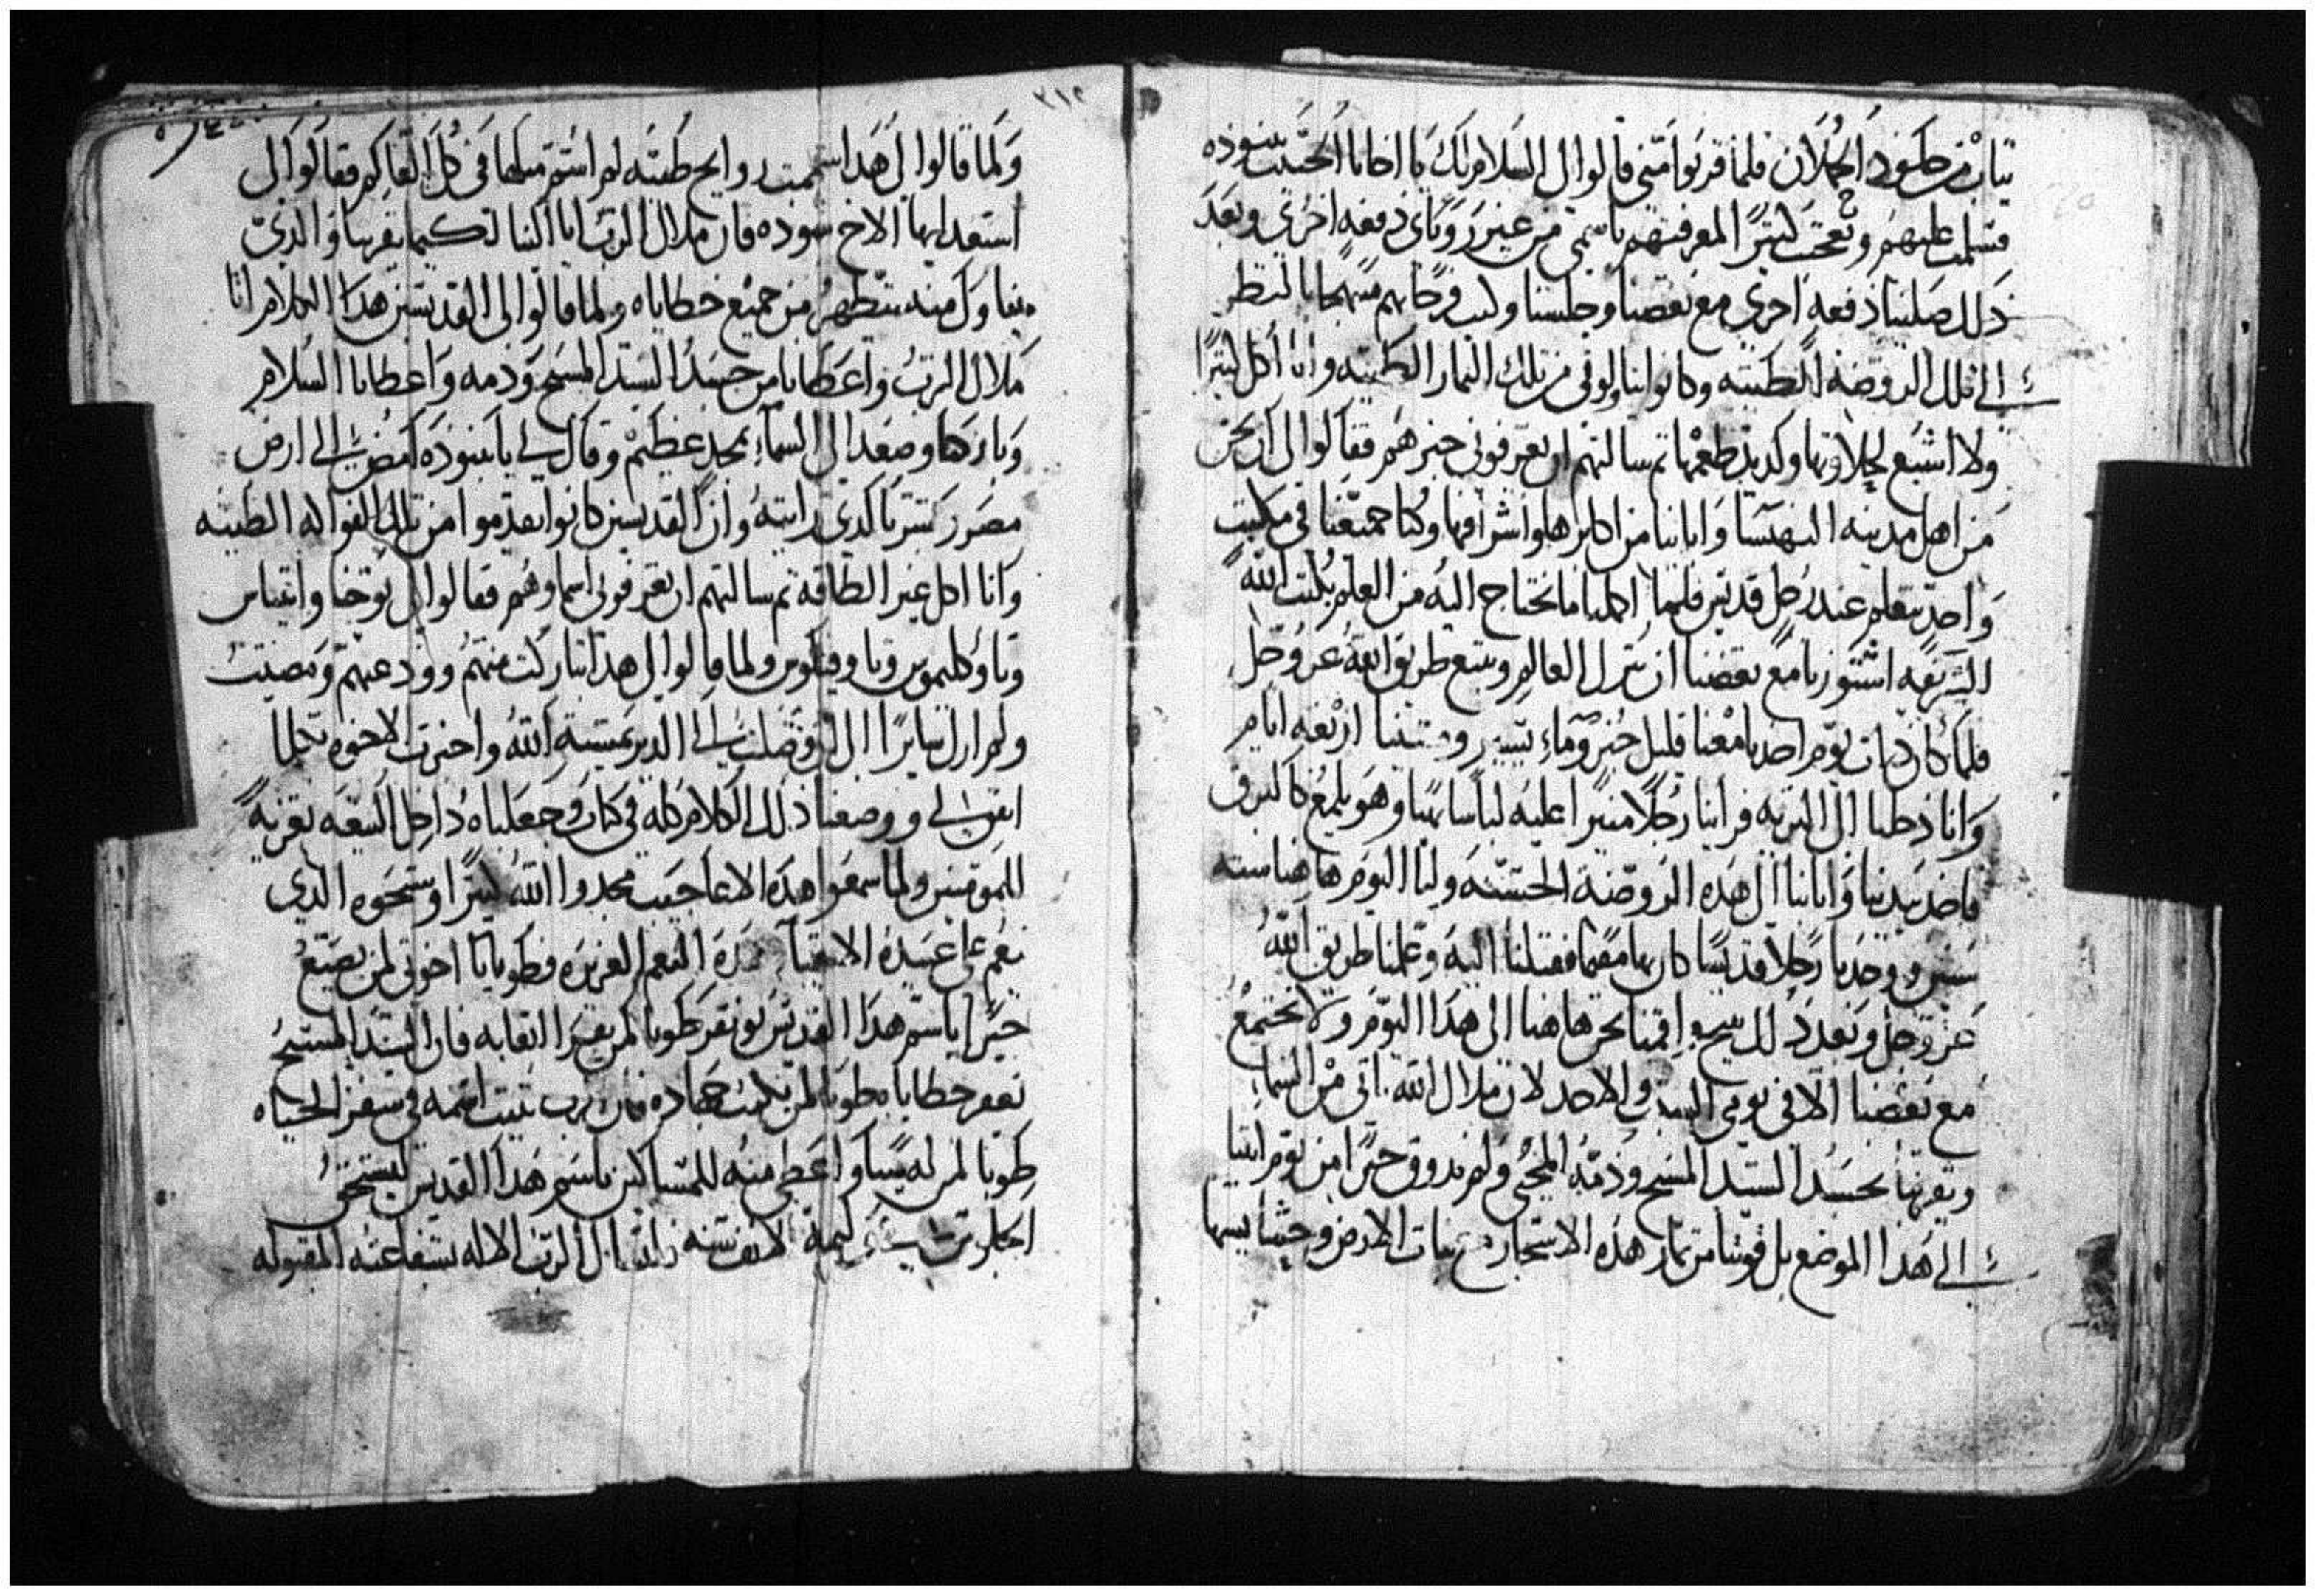 ثياب من جلود الحملان فلما قربوا منى قالوا لى السلام لك يا اخانا الحبيب ببنوده
فسلمت عليهم وتعجبت كثيرًا لمعرفتهم باسمى من غير رؤياى دفعه اخرى وبعد
ذلك صلينا دفعه اخرى مع بعضنا وجلسنا وكنت فرحًا بهم مبتهجًا بالنظر
الى تلك الروضه الطيبه وكانوا يناولونى من تلك الثمار الطيبه وانا اكل كثيرًا
ولا اشبع لحلاوتها ولديد طعمها ثم سالتهم ان يعرفونى خبرهم فقالوا لى نحن
من اهل مدينه البهنسا وابائنا من اكابرها واشرافها وكنا جميعنا فى مكتب
واحد نتعلم عند رجل قديس فلما اكملنا ما نحتاج اليه من العلم بكتب الله
الشريفه اشتورنا مع بعضنا ان نترك العالم ونتبع طريق الله عز وجل
فلما كان ذات يوم اخدنا معنا قليل خبز وماء يسير ومشينا اربعه ايام
وانا دخلنا الى البريه فراينا رجلًا منيرًا عليه لباسا بهيا وهو يلمع كالبرق
فاخد بيدنا واتانا الى هذه الروضة الحسنه ولنا اليوم هاهنا سته
سنين ووجدنا رجلًا قديسًا كان بها مقيما فقبلنا اليه وعلمنا طريق الله
عز وجل وبعد ذلك تنيح واقمنا نحن هاهنا الى هذا اليوم ولا نجتمع
مع بعضنا الا فى يومى السبت والاحد لان ملاك الله ياتى من السماء
ويقربنا بجسد السيد المسيح ودمه المحيى ولم ندوق خبزًا من يوم اتينا
الى هذا الموضع بل قوتنا من ثمار هذه الاشجار ونبات الارض
٣١٢
ولما قالوا لى هذا استممت روايح طيبه لم استم مثلها فى كل ايام فقالوا لى
استعد ايها الاخ ببنوده فان ملاك الرب اتا الينا لكيما يقربنا والذى
يتناول منه يتطهر من جميع خطاياه ولما قالوا لى القديسين هذا الكلام اتا
ملاك الرب واعطانا من جسد السيد المسيح ودمه واعطانا السلام
وباركنا وصعد الى السماء بمجد عظيم وقال لى يا ببنوده امض الى ارض
مصر وبشر بالدى رايته وان القديسين كانوا يقدموا من تلك الفواكه الطيبه
وانا اكل غير الطاقه ثم سالتهم ان يعرفونى اسماوهم فقالوا لى يوحنا
ولما قالوا لى هذا تباركت منهم وودعتهم ومضيت
ولم ازل سايرًا الى ان وصلت الى الدير بمشيئة الله واخبرت الاخوه بكلما
اتفق لى ووضعنا ذلك الكلام كله فى كتاب وجعلناه داخل البيعه تعزية
للمومنين ولما سمعوا هذه الاعاجيب مجدوا الله كثيرًا وسبحوه الذى
نعم على عبيده الاتقياء بهذه النعم الغزيره فطوبا يا اخوتى لمن يصنع
خيرًا باسم هذا القديس ابو نفر طوبا لمن يقرا اتعابه فان السيد المسيح
يغفر خطاياه طوبا لمن يكتب جهاده فان الرب يثبت اسمه فى سفر الحياه
طوبا لمن له يسار واعطى منه للمساكين باسم هذا القديس ليستحق
الرب الاله بشفاعته المقبوله